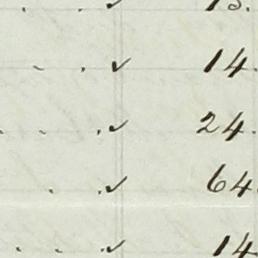 . . ✓ 13.
. . ✓ 14.
. . . ✓ 24.
. . ✓ 64.
. . . ✓ 14